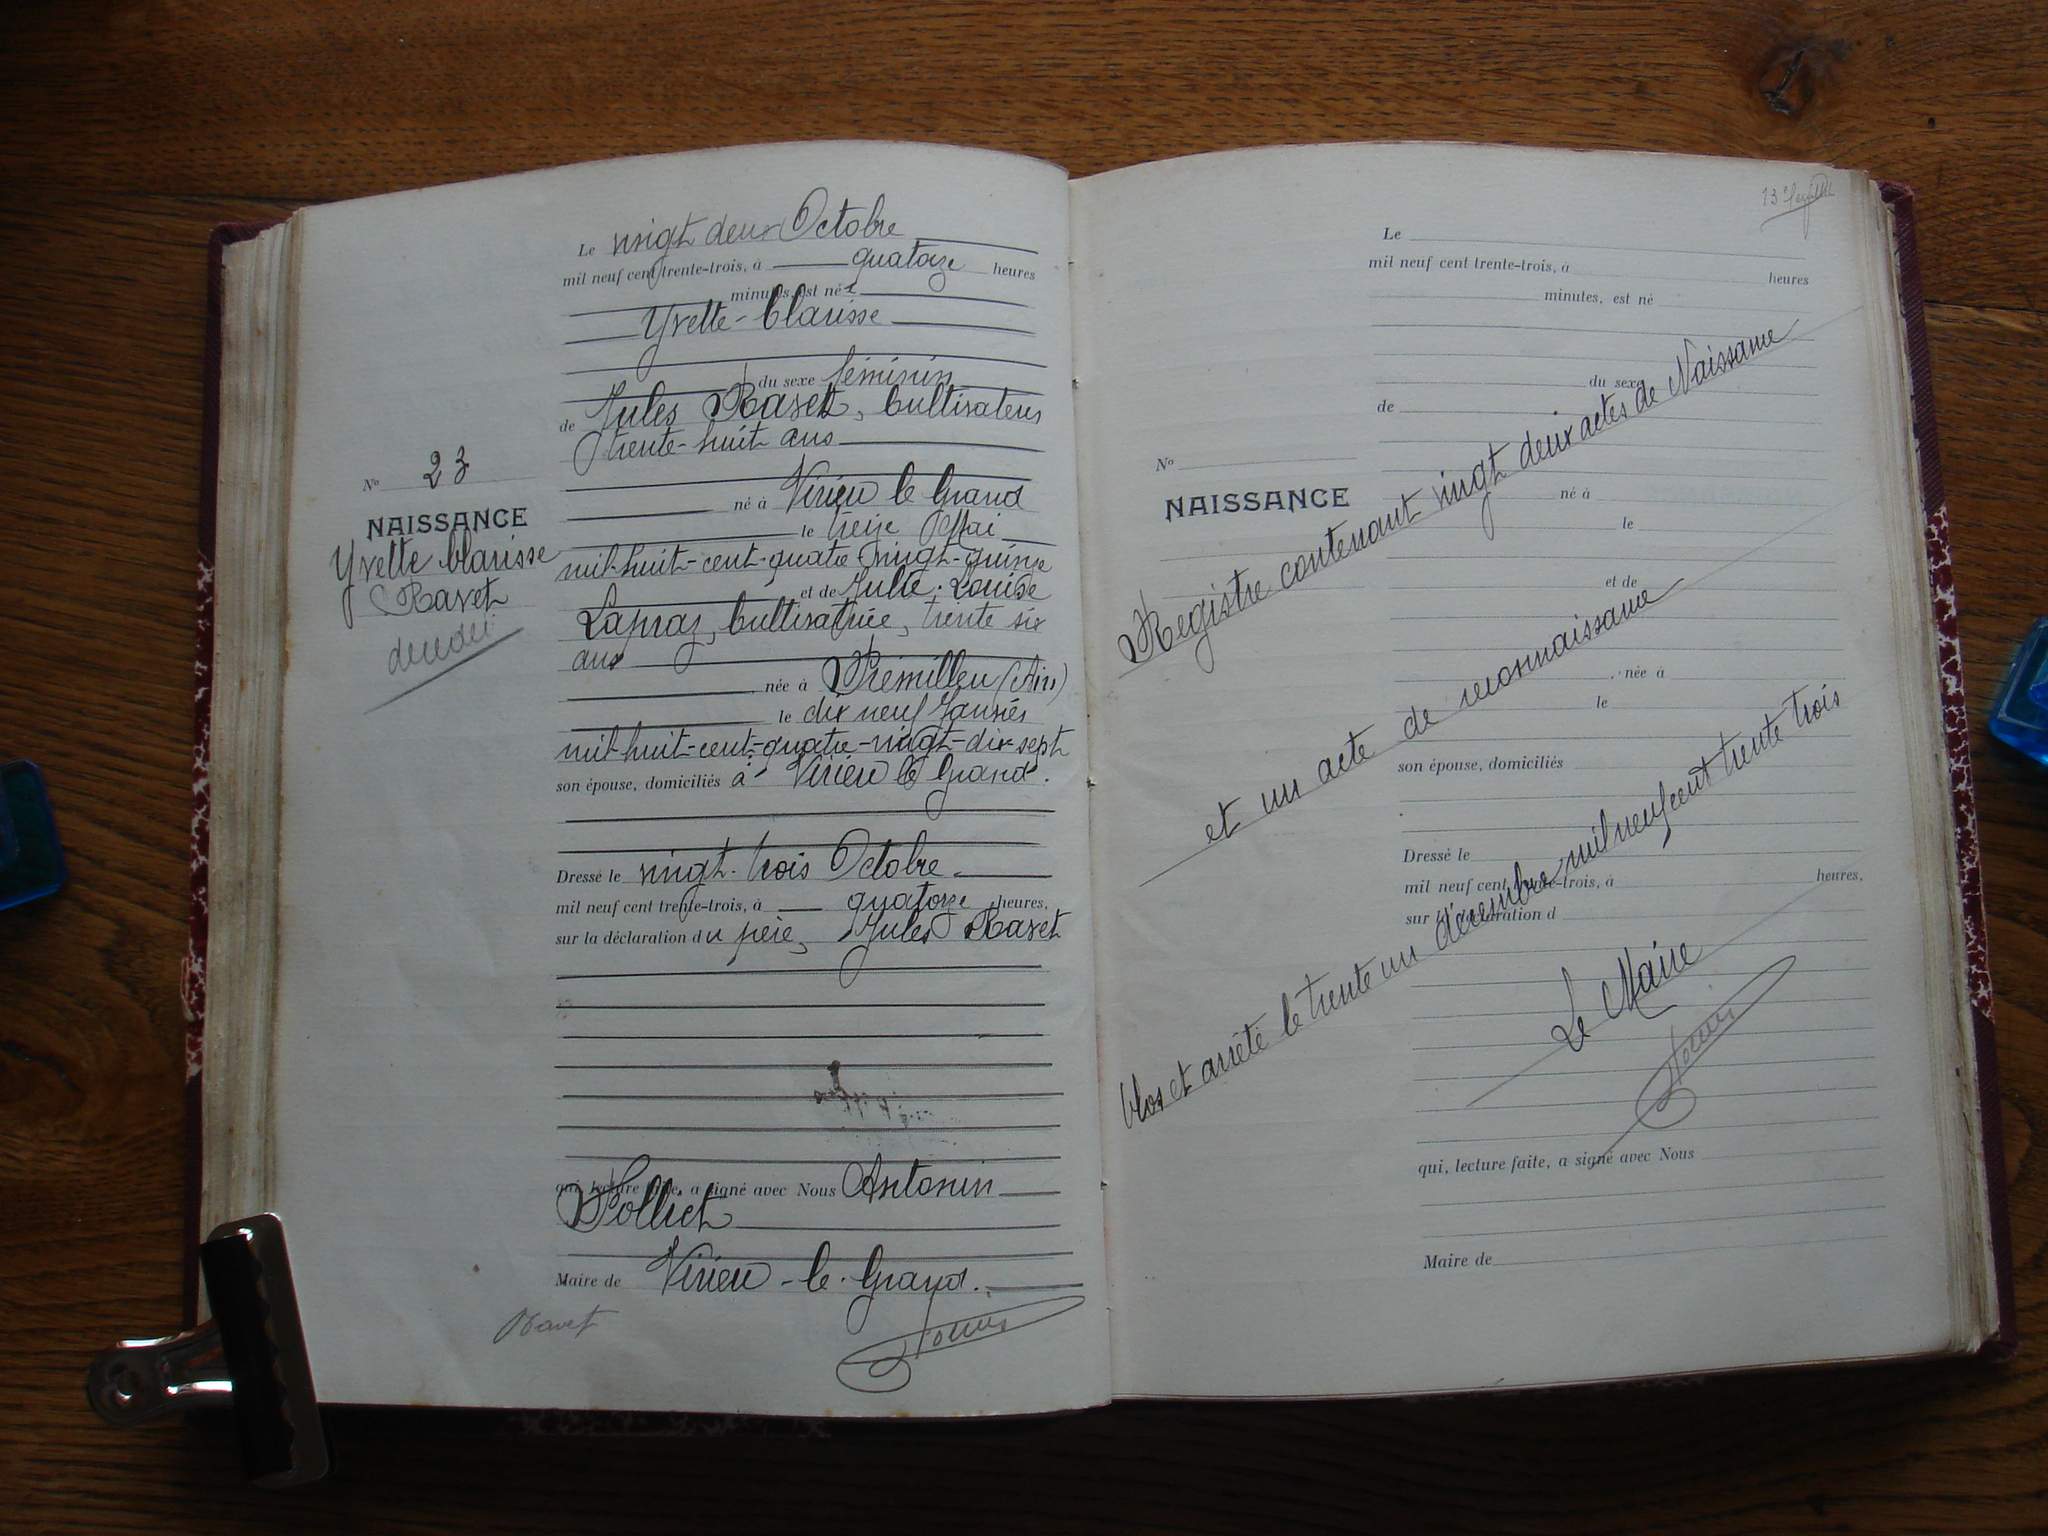 Le vingt deux Octobre
mil neuf cent trente-trois, à quatorze heures
minutes, est née
Yvette-Clarisse
du sexe féminin
de Jules Ravet, Cultivateur
trente-huit ans
né à Virieu le Grand
le treize Mai
mil-huit-cent-quatre vingt-quinze
et de Julie-Louise
Lapraz, Cultivatrice, trente six
ans
née à Prémillieu (Ain)
le dix neuf Janvier
mil-huit-cent-quatre-vingt-dix sept
son épouse, domiciliés à Virieu le Grand.
Dressé le vingt-trois Octobre
mil neuf cent trente-trois, à quatorze heures,
sur la déclaration du père, Jules Ravet
qui, lecture faite, a signé avec Nous Antonin
Polliet
Maire de Virieu-le-Grand.
Ravet
No 23
NAISSANCE
Yvette Clarisse
Ravet
décédée
13e feuillet
Le
mil neuf cent trente-trois, à heures
minutes, est né
du sexe
de
né à
le
et de
, née à
le
son épouse, domiciliés
Dressé le
mil neuf cent trente-trois, à heures,
sur la déclaration d
qui, lecture faite, a signé avec Nous
Maire de
No
NAISSANCE
Registre contenant vingt deux actes de Naissance
et un acte de reconnaissance
Clos et arrêté le trente un décembre mil neuf cent trente trois
Le Maire